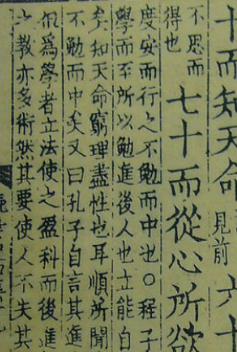 十而知天命見前六十
不思而
得也
七十而從心所欲
度安而行之不勉而中也○程子
學而至所以勉進後人也立能自
矣知天命窮理盡性也耳順所聞
不勉而中矣又曰孔子自言其進
但爲學者立法使之盈科而後進
之教亦多術然其要使人不失其